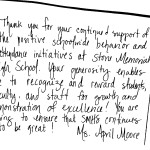 Thank you for your continued support of
the positive schoolwide behavior and
attendance initiatives at Stone Memorial
High School. Your generosity enables
to recognize and reward students,
faculty, and staff for growth and
demonstration of excellence! You are
to ensure that SMHS continues
to be great!
Ms. April Moore